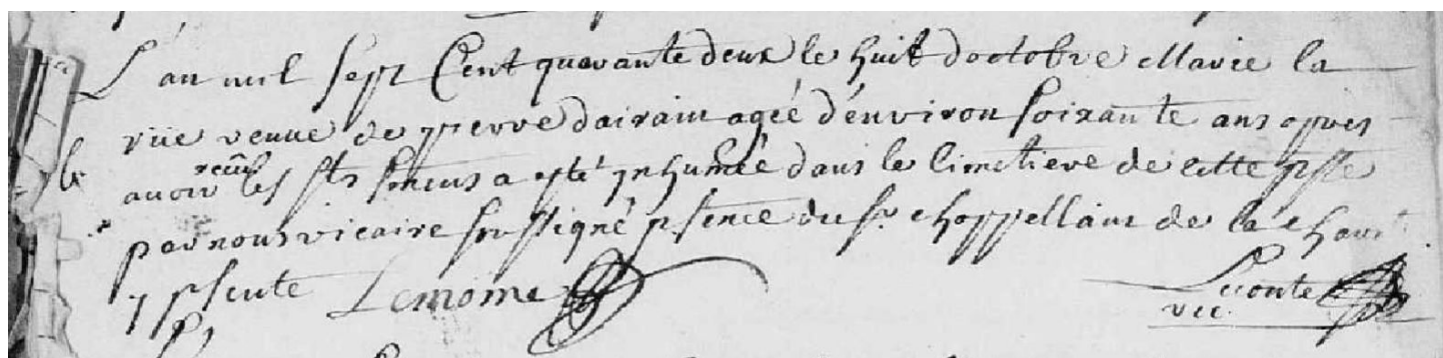 L'an mil sept Cent quarante deux le huit d'octobre Marie la
rüe veuve de pierre dairain agée d'environ soixante ans apres
avoir receu les sts sncus a esté ynhumée dans le cimetiere de cette psse
par nous vicaire soussigné psence du sr chappellain de la
y psente Lemoine Leconte
vic